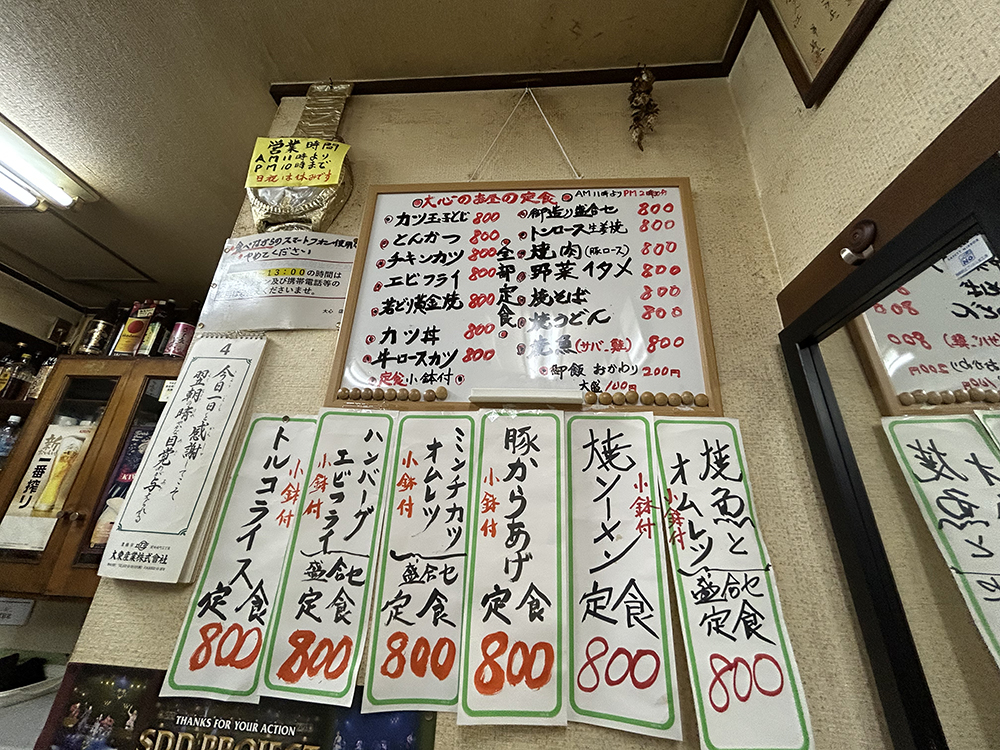 営業時間
AM11時より
PM10時まで
日祝は休みです
食べながらのスマートフォン使用
やめてください
13:00の時間は
及び携帯電話等の
くださいませ。
大心 店
大心のお昼の定食
AM11時より PM2時
カツ玉子とじ 800
とんかつ 800
チキンカツ 800
エビフライ 800
若どり黄金焼 800
カツ丼 800
牛ロースカツ 800
定食 小鉢付
全部定食
御造り盛合セ 800
トンロース生姜焼 800
焼肉(豚ロース) 800
野菜イタメ 800
焼そば 800
焼うどん 800
焼魚(サバ、鮭) 800
御飯 おかわり 200円
大盛 100円
4
今日一日を感謝
翌朝の晴れやかな目覚
大東産業株式会社
一番搾り
トルコライス定食
小鉢付
800
ハンバーグ
エビフライ
盛合セ
定食
小鉢付
800
ミンチカツ
オムレツ
盛合セ
定食
小鉢付
800
豚からあげ
定食
小鉢付
800
焼ソーメン
定食
小鉢付
800
焼魚と
オムレツ
盛合セ
定食
小鉢付
800
THANKS FOR YOUR ACTION
SDD PROJECT